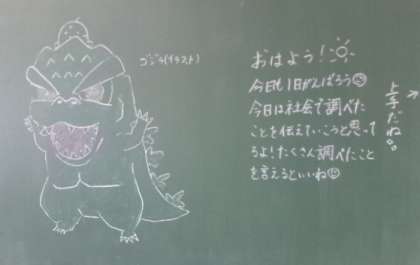 ゴジラ(イラスト)
おはよう!
今日も1日がんばろう
今日は社会で調べた
ことを伝えていこうと思って
るよ!たくさん調べたこと
を言えるといいね
上手だね。